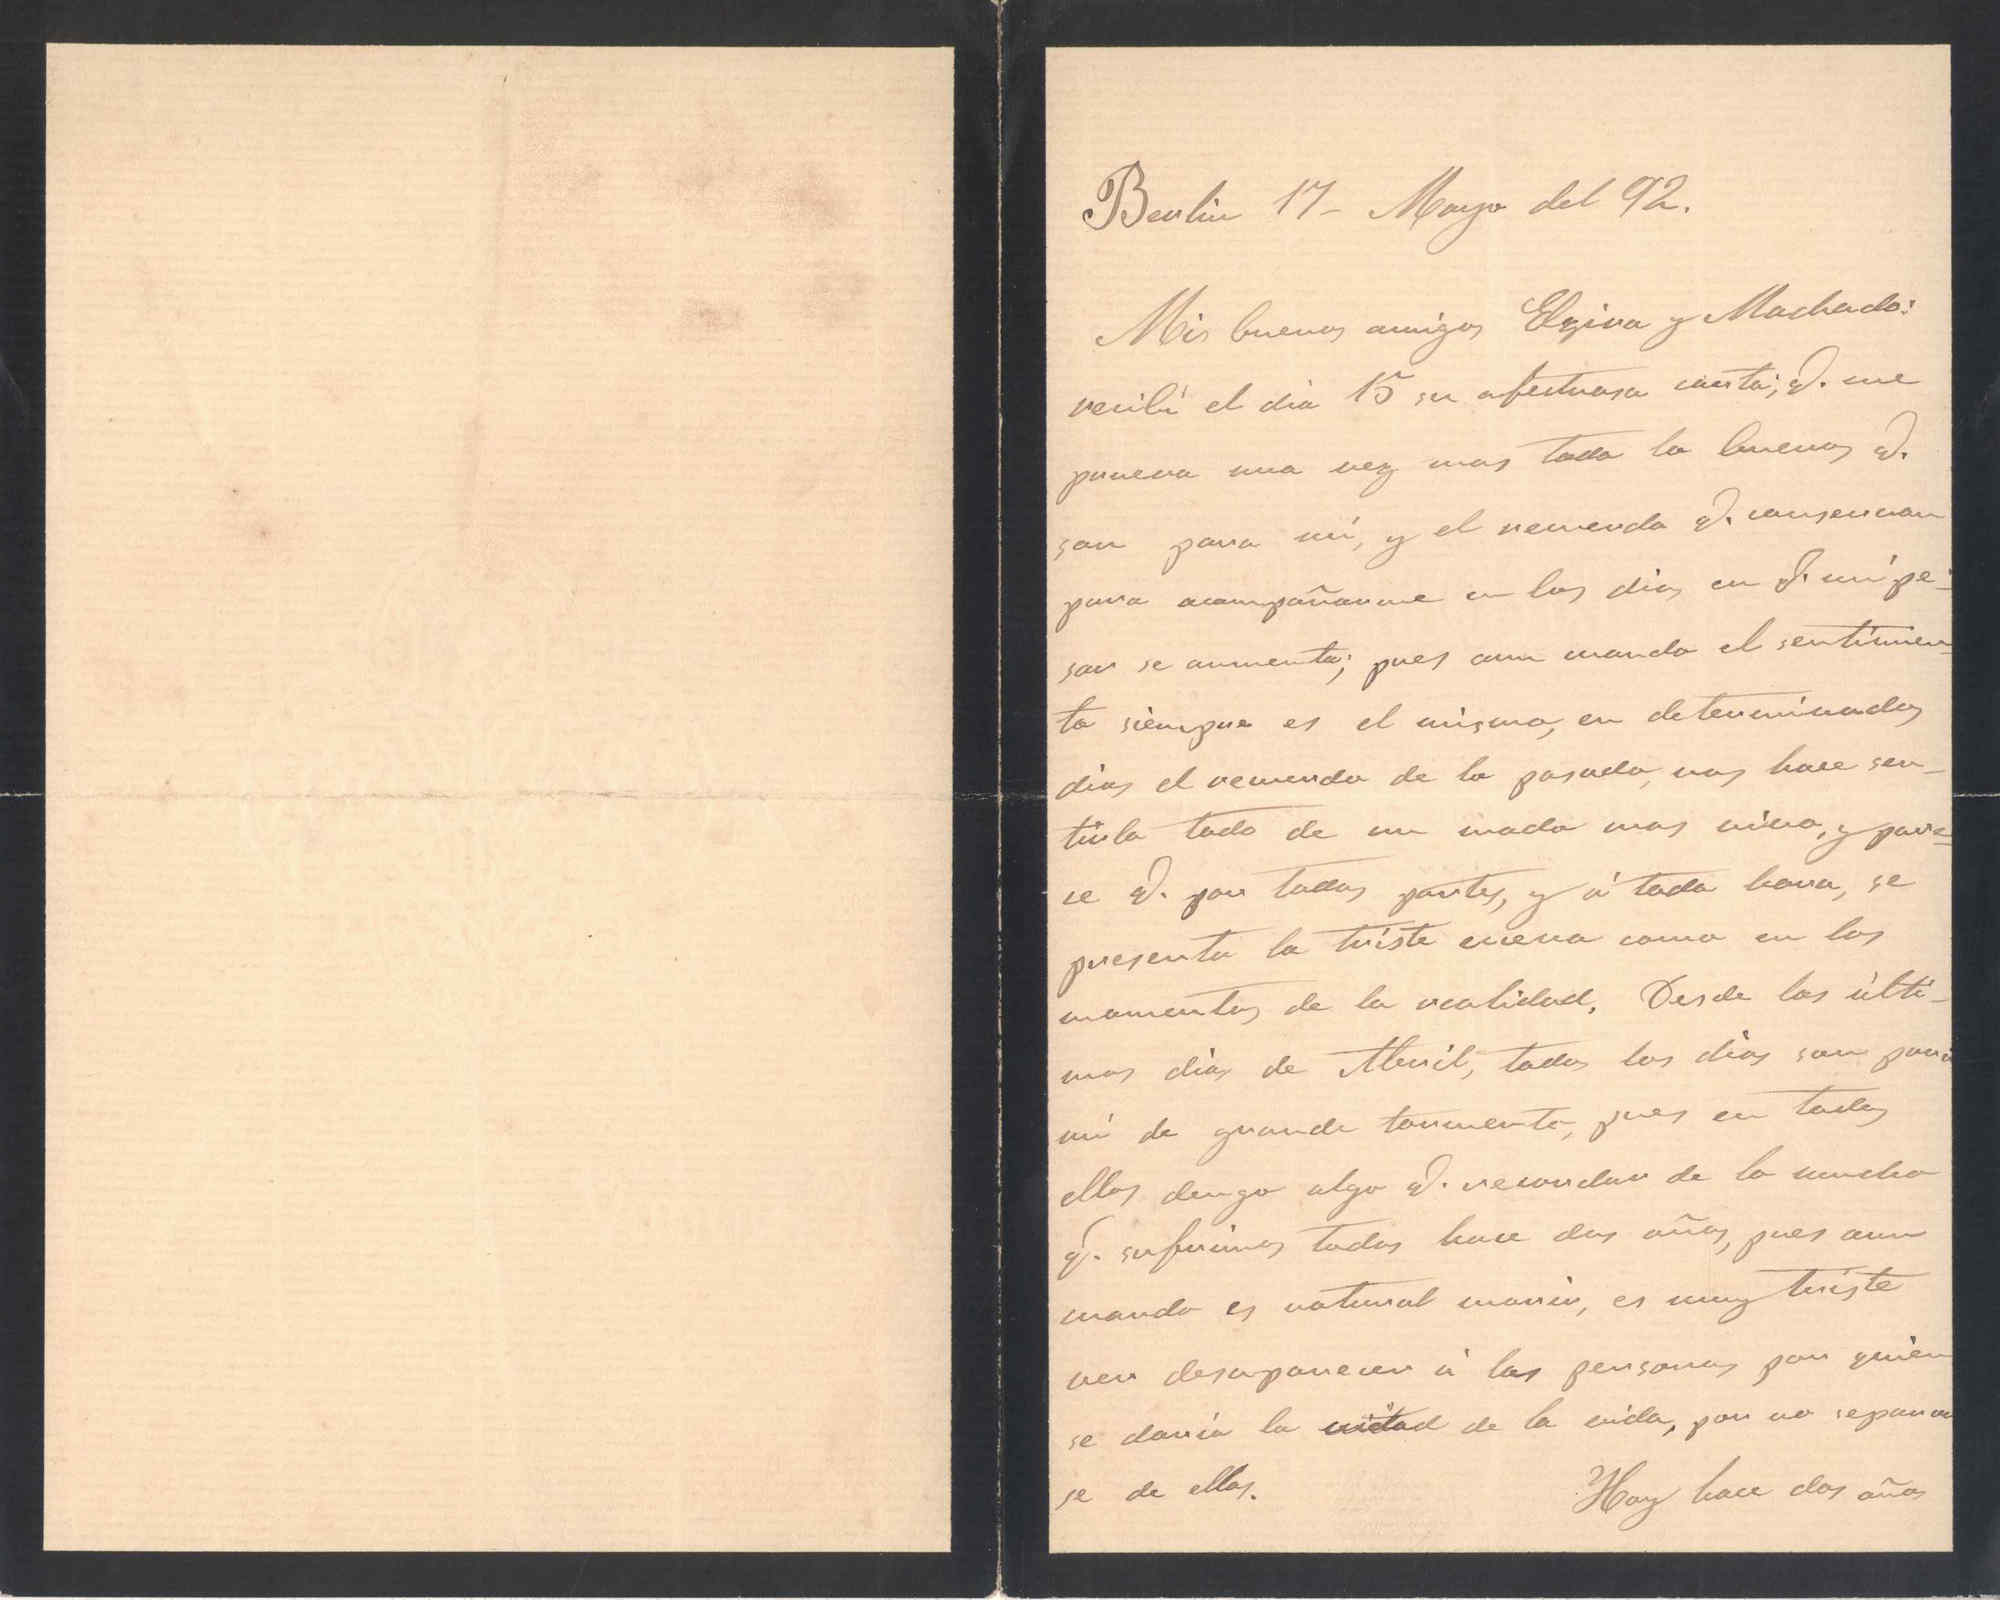 Berlin 17- Mayo del 92.
Mis buenos amigos Elzira y Machado:
recibí el dia 15 su afectuosa carta; q. me
prueva una vez mas todo lo buenos q.
son para mí, y el recuerdo q. conservan
para acompañarme en los dias en q. mi pe-
sar se aumenta; pues aun cuando el sentimien-
to siempre es el mismo, en determinados
dias el recuerdo de lo pasado, nos hace sen-
tirlo todo de un modo mas vivo, y pare-
ce q. por todas partes, y á toda hora, se
presenta la triste escena como en los
momentos de la realidad. Desde los últi-
mos dias de Abril, todos los dias son para
mí de grande tormento, pues en todos
ellos tengo algo q. recordar de lo mucho
q. sufrimos todos hace dos años, pues aun
cuando es natural morir, es muy triste
ver desaparecer á las personas por quien
se daria la mitad de la vida, por no separar
se de ellas. Hoy hace dos años